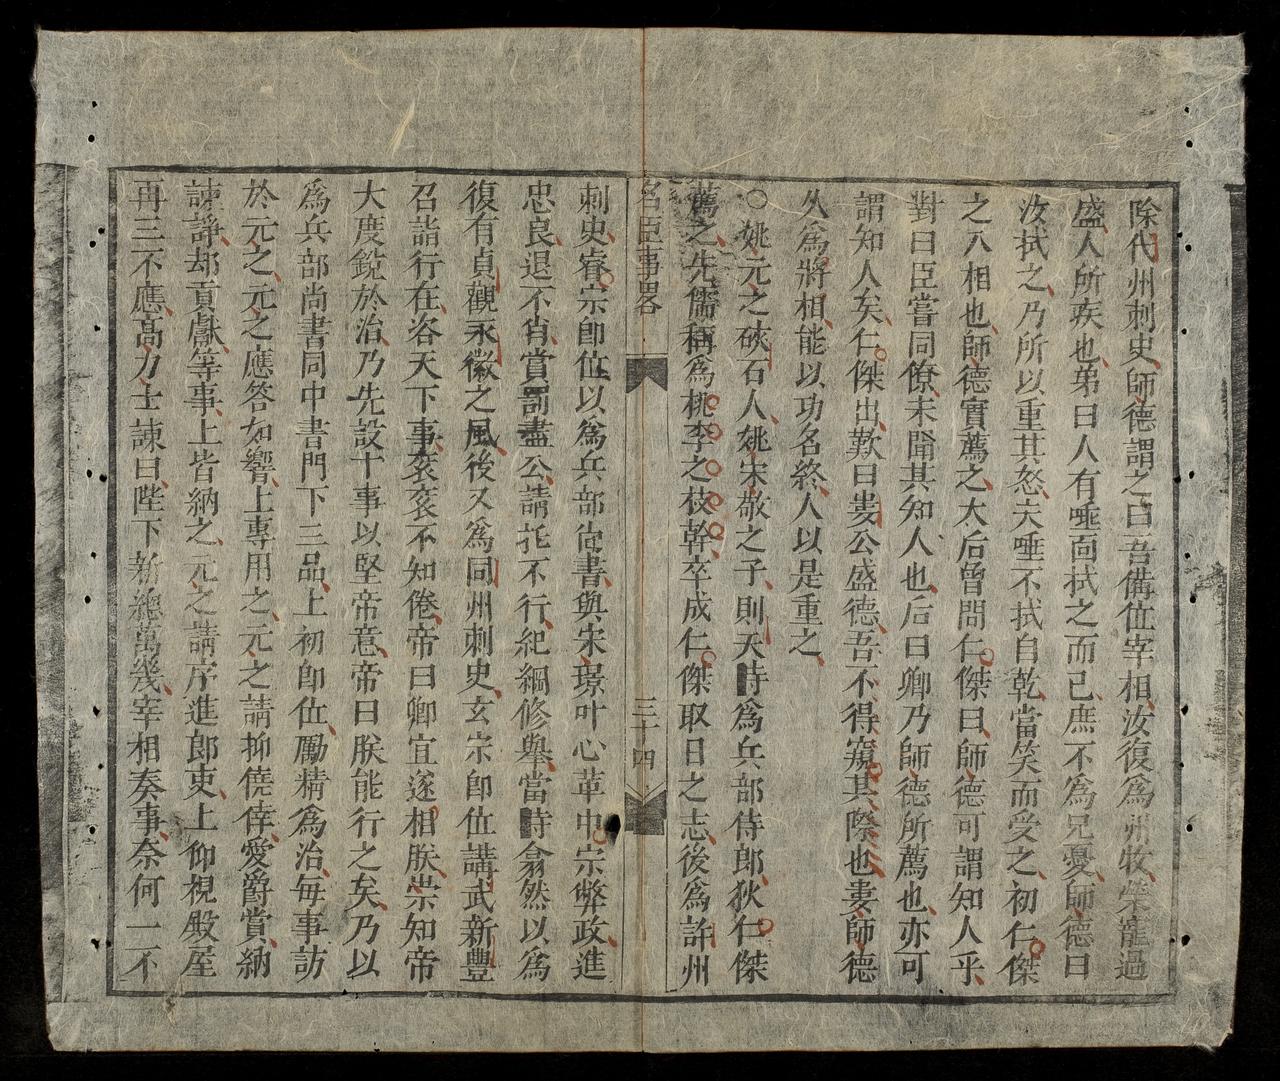 除代州刺史師德謂之曰吾備位宰相汝復爲州牧榮寵過
盛人所疾也弟曰人有唾面拭之而已庶不爲兄憂師德曰
汝拭之乃所以重其怒夫唾不拭自乾當笑而受之初仁傑
之入相也師德實薦之太后曾問仁傑曰師德可謂知人乎
對曰臣嘗同僚未聞其知人也后曰卿乃師德所薦也亦可
謂知人矣仁傑出歎曰婁公盛德吾不得窺其際也婁師德
久爲將相能以功名終人以是重之
○姚元之硤石人姚宋敬之子則天時爲兵部侍郎狄仁傑
薦之先儒稱爲桃李之枝幹卒成仁傑取日之志後爲許州
名臣事畧
三十四
刺史睿宗卽位以爲兵部尙書與宋璟叶心革中宗弊政進
忠良退不肖賞罰盡公請托不行紀綱修舉當時翕然以爲
復有貞觀永徽之風後又爲同州刺史玄宗卽位講武新豐
召詣行在咨天下事袞袞不知倦帝曰卿宜遂相朕崇知帝
大度銳於治乃先設十事以堅帝意帝曰朕能行之矣乃以
爲兵部尚書同中書門下三品上初卽位勵精爲治每事訪
於元之元之應答如響上專用之元之請抑僥倖愛爵賞納
諫諍却貢獻等事上皆納之元之請序進郎吏上仰視殿屋
再三不應高力士諫曰陛下新總萬幾宰相奏事奈何一不